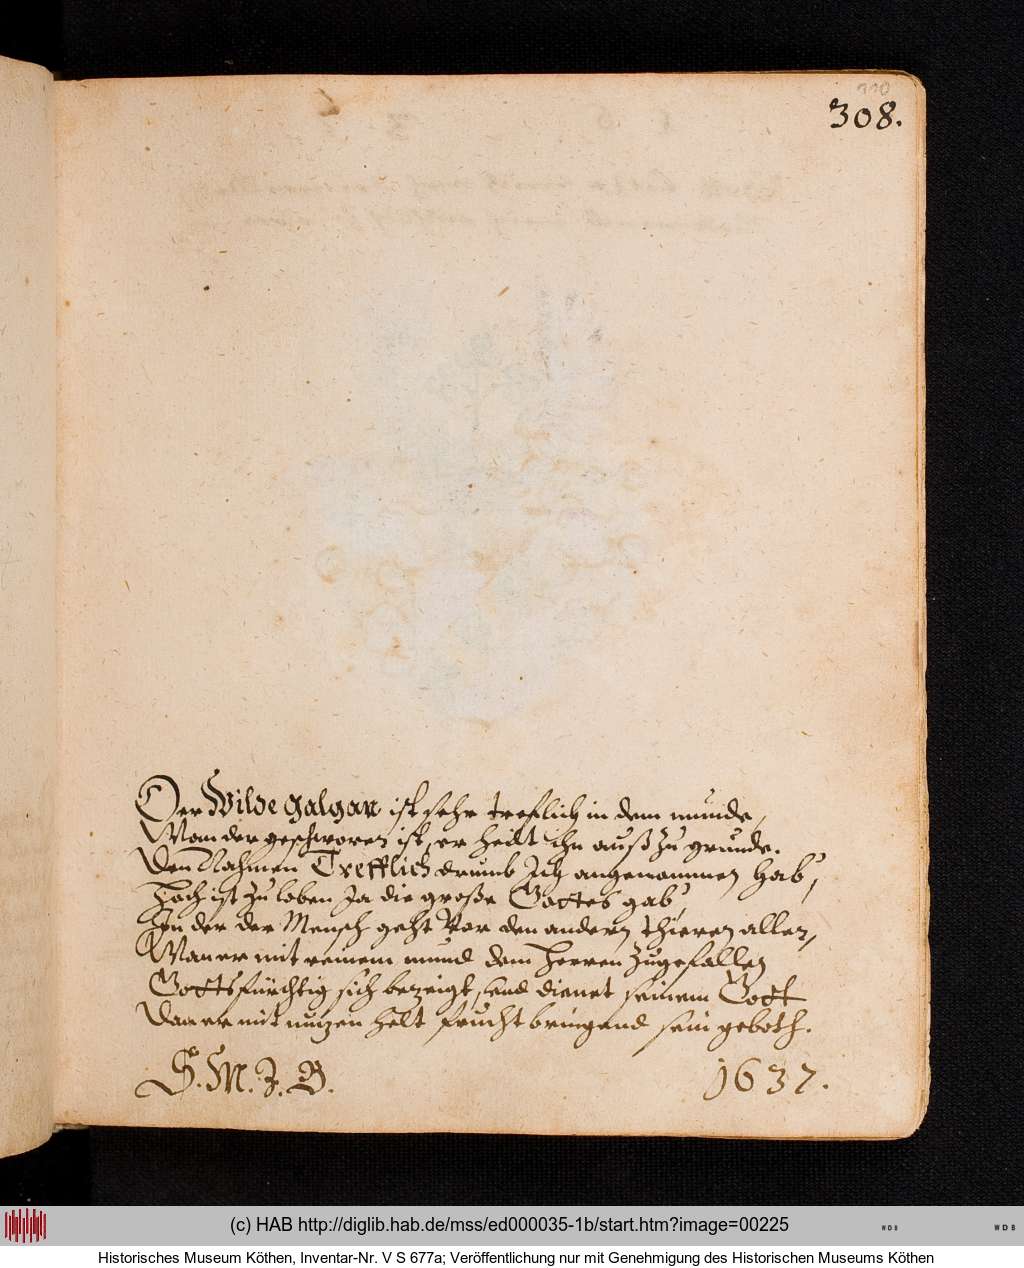 110
308.
Der Wilde galgan ist sehr treflich in dem munde,
Wan der geschworen ist, er heilt ihn auß zu grunde.
Den Nahmen Trefflich drumb Ich angenommen hab,
Hoch ist zu loben Ja die große Gottes gab
In der der Mensch geht Vor den andern thieren allen,
Wan er mit reinem mund dem Herren zugefallen
Gottsfürchtig sich bezeigt, und dienet seinem Gott
Dan er mit nutzen helt fruchtbringend sein geboth.
S. M. Z. B.
1637.
(c) HAB http://diglib.hab.de/mss/ed000035-1b/start.htm?image=00225
WDB
WDB
Historisches Museum Köthen, Inventar-Nr. V S 677a; Veröffentlichung nur mit Genehmigung des Historischen Museums Köthen